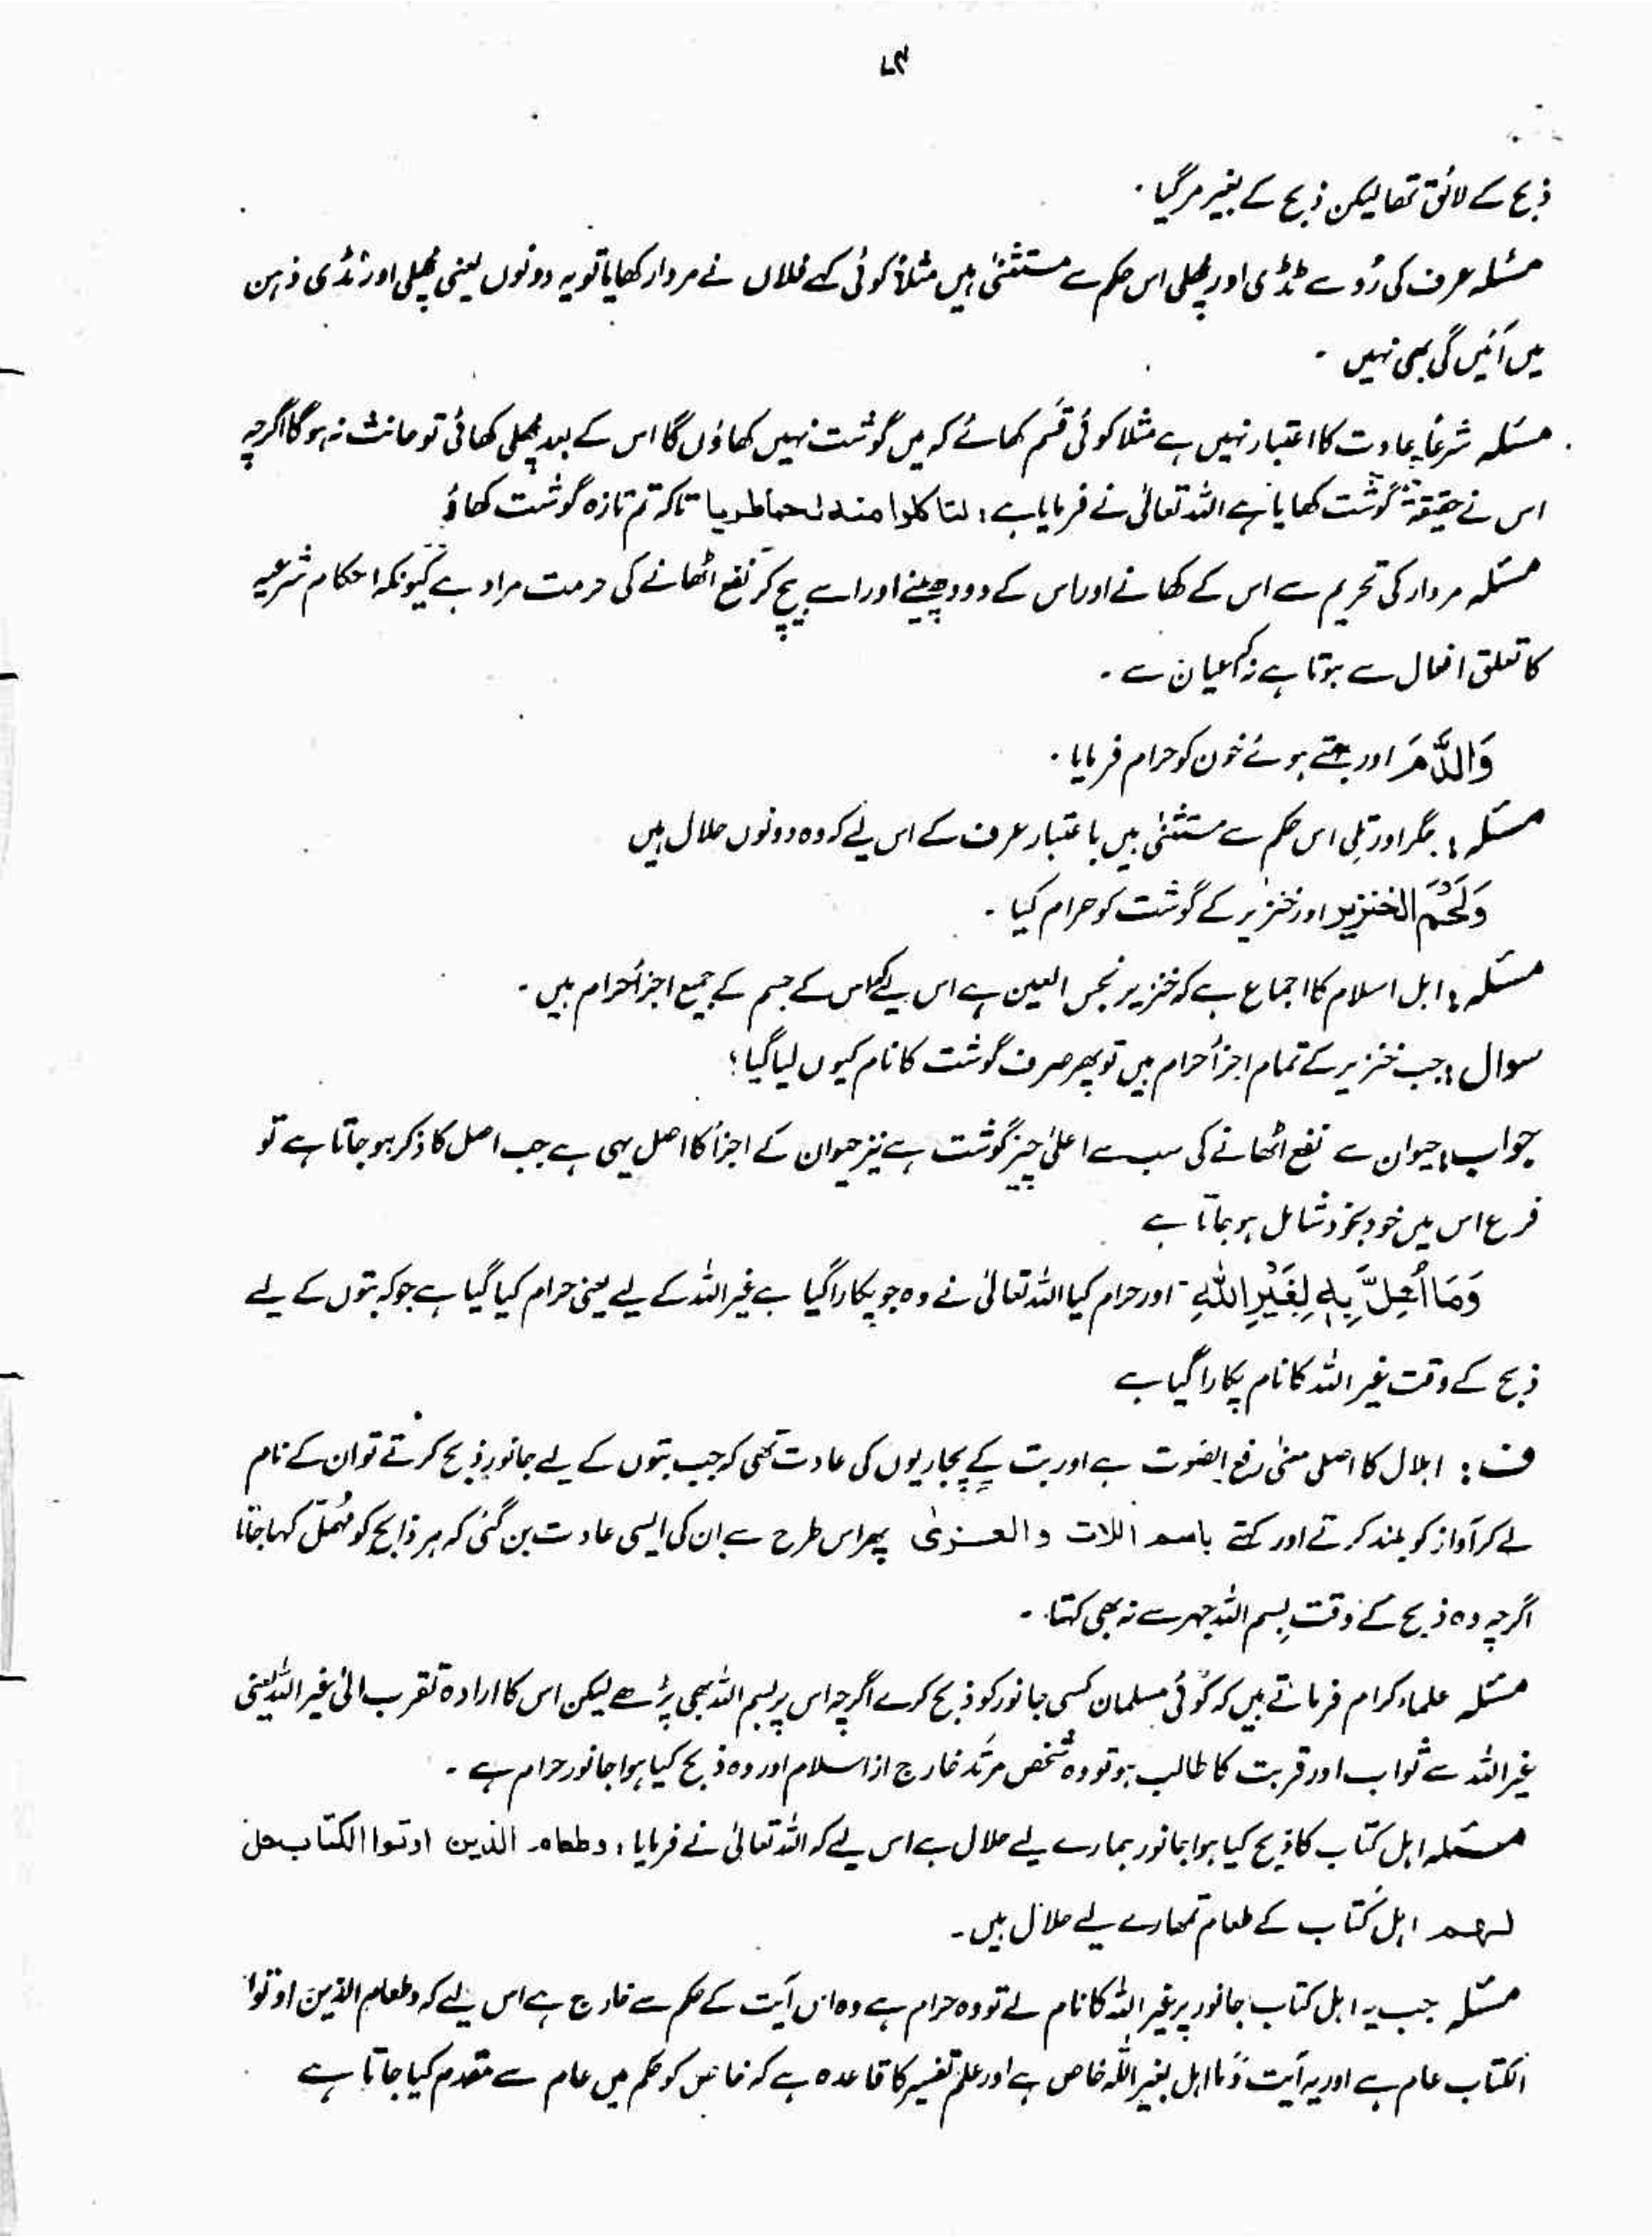 ۴۷
ذبح کے لائق تھا لیکن ذبح کے بغیر مر گیا ۔
مسئلہ عرف کی رُو سے ٹڈی اور مچھلی اس حکم سے مستثنیٰ ہیں مثلاً کوئی کہے فلاں نے مردار کھایا تو یہ دونوں یعنی مچھلی اور ٹڈی ذہن
میں آئیں گی بھی نہیں ۔
مسئلہ شرعاً عادت کا اعتبار نہیں ہے مثلا کوئی قسم کھائے کہ میں گوشت نہیں کھاؤں گا اس کے بعد مچھلی کھائی تو حانث نہ ہو گا اگرچہ
اس نے حقیقۃً گوشت کھایا ہے اللہ تعالیٰ نے فرمایا ہے : لتا کلوا منہ لحما طریا تاکہ تم تازہ گوشت کھاؤ
مسئلہ مردار کی تحریم سے اس کے کھانے اور اس کے دودھ پینے اور اسے بیچ کر نفع اٹھانے کی حرمت مراد ہے کیونکہ احکام شرعیہ
کا تعلق افعال سے ہوتا ہے نہ کہ اعیان سے ۔
وَالدَّمَ اور بہتے ہوئے خون کو حرام فرمایا ۔
مسئلہ : جگر اور تلی اس حکم سے مستثنیٰ ہیں باعتبار عرف کے اس لیے کہ وہ دونوں حلال ہیں
وَلَحْمَ الخنزیر اور خنزیر کے گوشت کو حرام کیا ۔
مسئلہ : اہل اسلام کا اجماع ہے کہ خنزیر نجس العین ہے اس لیے کہ اس کے جسم کے جمیع اجزأ حرام ہیں ۔
سوال : جب خنزیر کے تمام اجزأ حرام ہیں تو پھر صرف گوشت کا نام کیوں لیا گیا ؟
جواب : حیوان سے نفع اٹھانے کی سب سے اعلیٰ چیز گوشت ہے نیز حیوان کے اجزأ کا اصل یہی ہے جب اصل کا ذکر ہو جاتا ہے تو
فرع اس میں خود بخود شامل ہو جاتا ہے
وَمَا اُھِلَّ بِہٖ لِغَیْرِ اللّٰہِ ۔ اور حرام کیا اللہ تعالیٰ نے وہ جو پکارا گیا ہے غیر اللہ کے لیے یعنی حرام کیا گیا ہے جو کہ بتوں کے لیے
ذبح کے وقت غیر اللہ کا نام پکارا گیا ہے
ف : اہلال کا اصلی معنیٰ رفع الصوت ہے اور بت کے پجاریوں کی عادت تھی کہ جب بتوں کے لیے جانور ذبح کرتے تو ان کے نام
لے کر آواز کو بلند کرتے اور کہتے باسم اللات والعزیٰ پھر اس طرح سے ان کی ایسی عادت بن گئی کہ ہر ذابح کو مُہِلّ کہا جاتا
اگرچہ وہ ذبح کے وقت بسم اللہ جہر سے نہ بھی کہتا ۔
مسئلہ علماء کرام فرماتے ہیں کہ کوئی مسلمان کسی جانور کو ذبح کرے اگرچہ اس پر بسم اللہ بھی پڑھے لیکن اس کا ارادہ تقرب الیٰ غیر اللہ یعنی
غیر اللہ سے ثواب اور قربت کا طالب ہو تو وہ شخص مرتد خارج از اسلام اور وہ ذبح کیا ہوا جانور حرام ہے ۔
مسئلہ اہل کتاب کا ذبح کیا ہوا جانور ہمارے لیے حلال ہے اس لیے کہ اللہ تعالیٰ نے فرمایا : وطعام الذین اوتوا الکتاب حل
لہم اہل کتاب کے طعام تمہارے لیے حلال ہیں ۔
مسئلہ جب یہ اہل کتاب جانور پر غیر اللہ کا نام لے تو وہ حرام ہے وہ اس آیت کے حکم سے خارج ہے اس لیے کہ وطعام الذین اوتوا
الکتاب عام ہے اور یہ آیت وَما اہل بغیر اللہ خاص ہے اور علم تفسیر کا قاعدہ ہے کہ خاص کو حکم میں عام سے مقدم کیا جاتا ہے